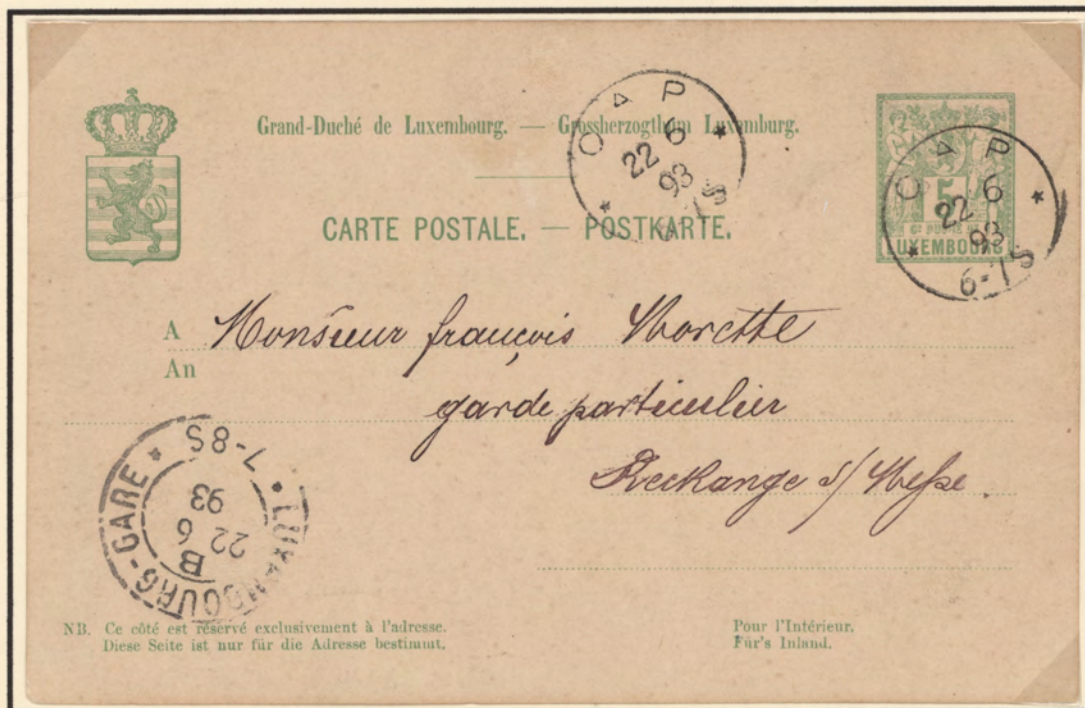 Grand-Duché de Luxembourg. — Grossherzogthum Luxemburg.
CARTE POSTALE. — POSTKARTE.
CAP
22 6
93
6-7S
5
GD DUCHÉ DE
LUXEMBOURG
CAP
22 6
93
6-7S
A Monsieur françois Morette
An
garde particulier
Reckange s/ Messe
LUXEMBOURG-GARE
7-8S
B
22 6
93
NB. Ce côté est réservé exclusivement à l'adresse.
Diese Seite ist nur für die Adresse bestimmt.
Pour l'Intérieur.
Für's Inland.